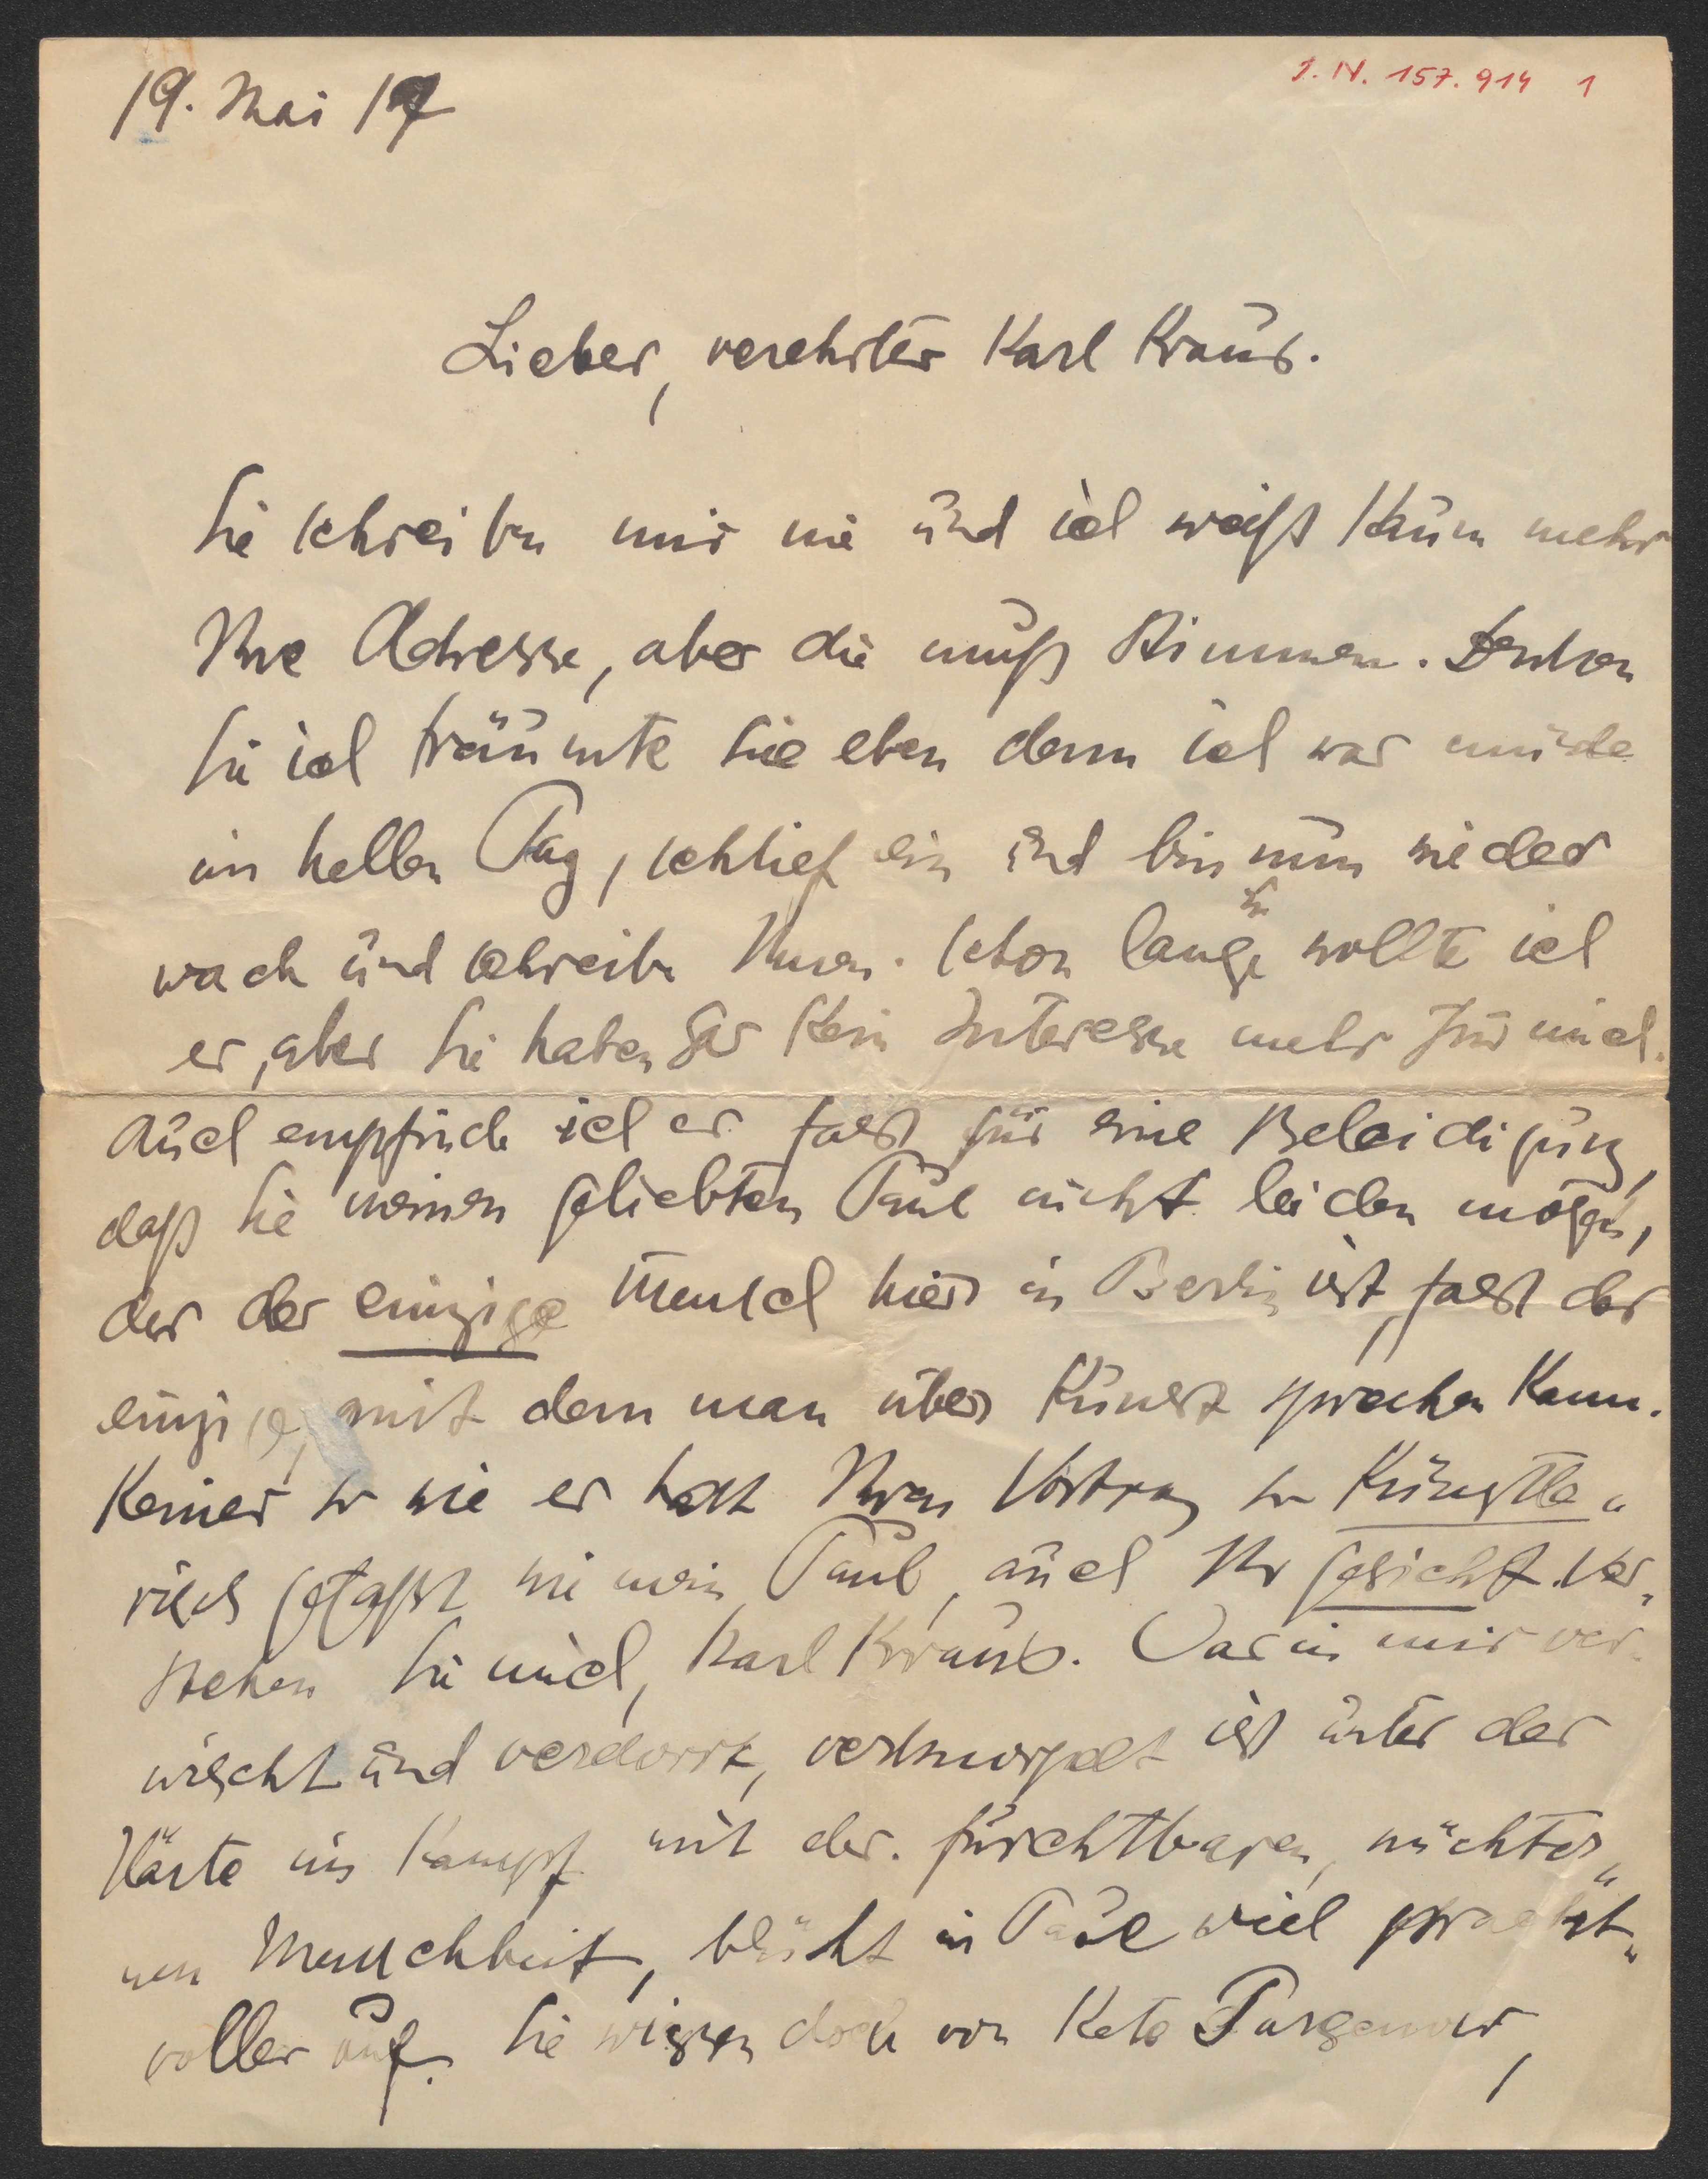 19. Mai 17
J. N. 157.914 1
Lieber, verehrter Karl Kraus.
Sie schreiben mir nie und ich weiß kaum mehr
Ihre Adresse, aber die muß stimmen. Denken
Sie ich träumte Sie eben denn ich war müde
im hellen Tag, schlief ein und bin nun wieder
wach und schreibe Ihnen. Schon lange wollte ich
es, aber Sie haben gar kein Interesse mehr für mich.
Auch empfinde ich es fast für eine Beleidigung,
daß Sie meinen geliebten Paul nicht leiden mögen,
der der einzige Mensch hier in Berlin ist, fast der
einzige, mit dem man über Kunst sprechen kann.
Keiner so wie er hat Ihren Vortrag so künstle„
risch gefaßt wie mein Paul, auch Ihr Gesicht. Ver„
stehen Sie mich, Karl Kraus. Was in mir ver„
wischt und verdorrt, ist unter der
Härte im Kampf mit der furchtbaren, nüchter„
nen Menschheit, blüht in Paul viel pracht„
voller auf. Sie wissen doch von Kete Parsenow,